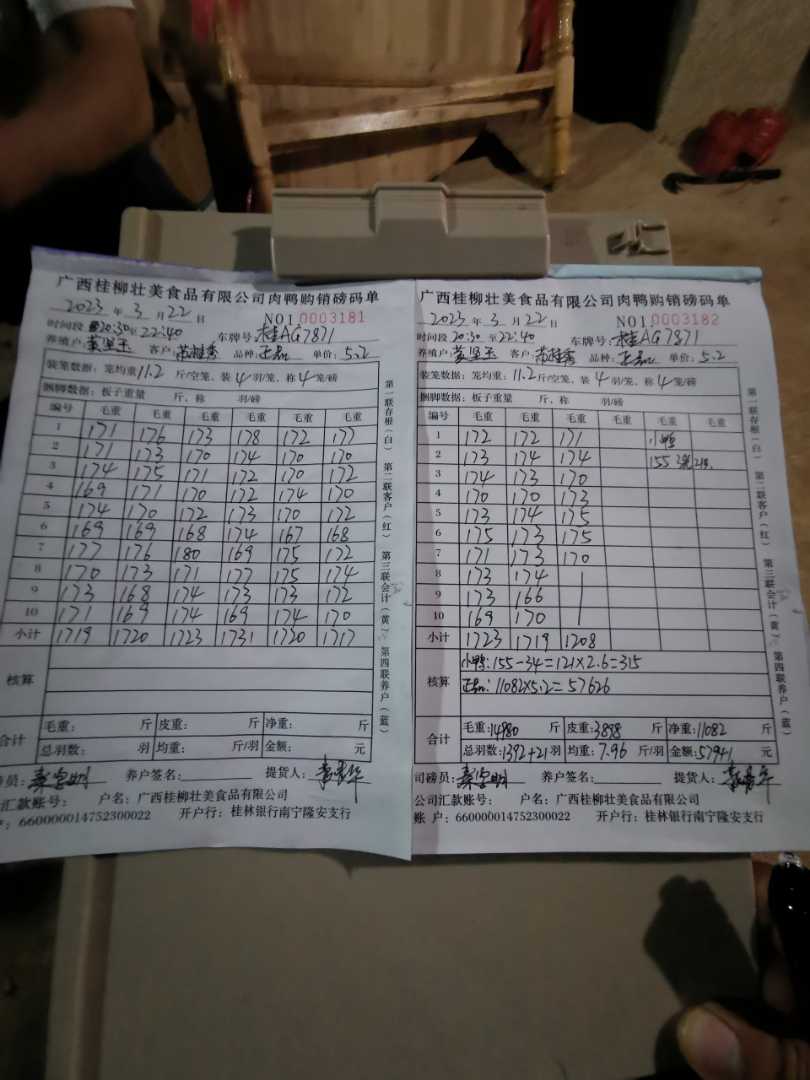 广西桂柳壮美食品有限公司肉鸭购销磅码单
2023 年 3 月 22 日 NO1 0003181
时间段 20:30至22:40 车牌号:桂AG7871
养殖户: 客户: 品种:正品 单价:5.2
装笼数据:笼均重11.2斤/空笼、装4羽/笼、称4笼/磅
捆脚数据:板子重量 斤、称 羽/磅
编号 毛重 毛重 毛重 毛重 毛重 毛重
1 171 176 173 178 172 177
2 171 173 170 174 170 170
3 174 175 171 172 170 172
4 169 171 170 172 174 170
5 174 170 172 173 170 172
6 169 169 168 174 167 168
7 177 176 180 169 175 172
8 170 173 171 177 175 174
9 173 168 174 173 173 172
10 171 169 174 169 174 170
小计 1719 1720 1723 1731 1720 1717
核算
合计 毛重: 斤 皮重: 斤 净重: 斤
总羽数: 羽 均重: 斤/羽 金额: 元
磅员: 养户签名: 提货人:
公司汇款账号: 户名:广西桂柳壮美食品有限公司
户:660000014752300022 开户行:桂林银行南宁隆安支行
第一联存根(白) 第二联客户(红) 第三联会计(黄) 第四联养户(蓝)
广西桂柳壮美食品有限公司肉鸭购销磅码单
2023 年 3 月 22 日 NO1 0003182
时间段 20:30至22:40 车牌号:桂AG7871
养殖户: 客户: 品种:正品 单价:5.2
装笼数据:笼均重11.2斤/空笼、装4羽/笼、称4笼/磅
捆脚数据:板子重量 斤、称 羽/磅
编号 毛重 毛重 毛重 毛重 毛重 毛重
1 172 172 171 小鸭
2 173 174 174 155 3笼21只
3 174 173 170
4 170 170 173
5 173 174 175
6 175 173 175
7 171 173 170
8 173 174
9 173 166
10 169 170
小计 1723 1719 1208
核算 小鸭:155-34=121×2.6=315
正品:11082×5.2=57626
合计 毛重:14980 斤 皮重:3898 斤 净重:11082 斤
总羽数:1392+21羽 均重:7.96 斤/羽 金额:57941 元
司磅员: 养户签名: 提货人:
公司汇款账号: 户名:广西桂柳壮美食品有限公司
账 户:660000014752300022 开户行:桂林银行南宁隆安支行
第一联存根(白) 第二联客户(红) 第三联会计(黄) 第四联养户(蓝)